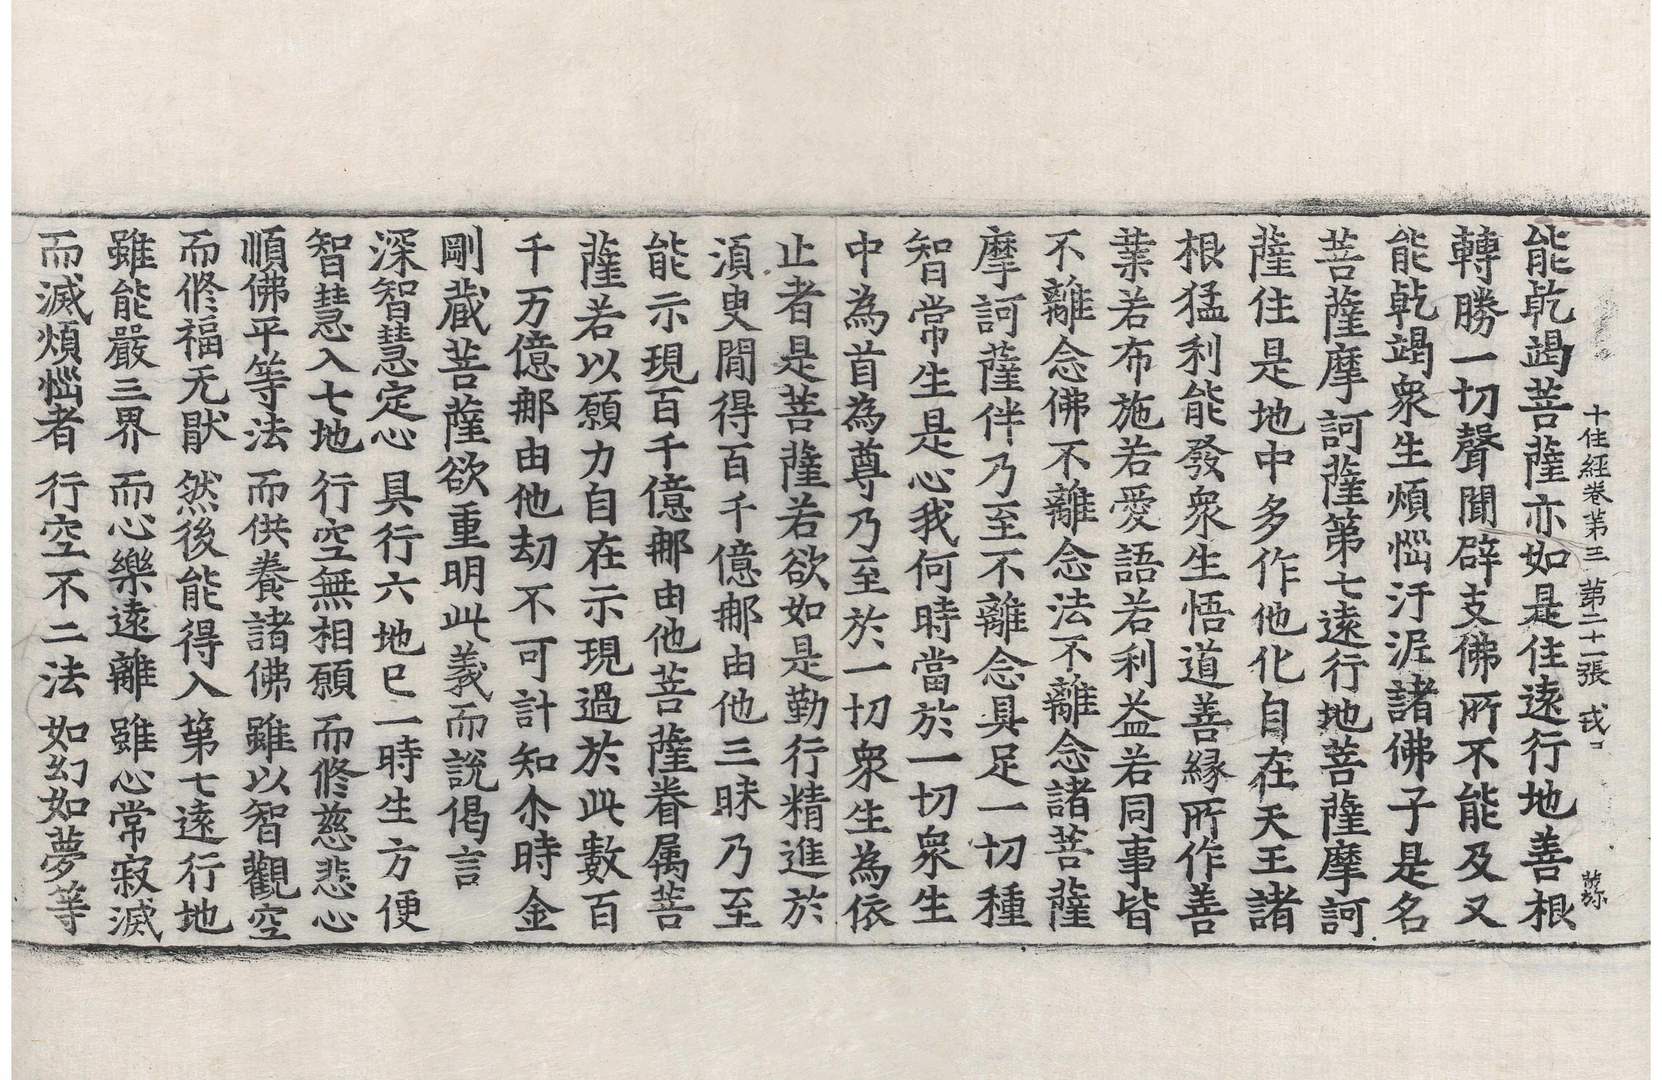 十住經卷第三　第二十一張　戎
能乾竭菩薩亦如是住遠行地善根
轉勝一切聲聞辟支佛所不能及又
能乾竭衆生煩惱汙泥諸佛子是名
菩薩摩訶薩第七遠行地菩薩摩訶
薩住是地中多作他化自在天王諸
根猛利能發衆生悟道善緣所作善
業若布施若愛語若利益若同事皆
不離念佛不離念法不離念諸菩薩
摩訶薩伴乃至不離念具足一切種
智常生是心我何時當於一切衆生
中為首為尊乃至於一切衆生為依
止者是菩薩若欲如是勤行精進於
須臾閒得百千億那由他三昧乃至
能示現百千億那由他菩薩眷属菩
薩若以願力自在示現過於此數百
千万億那由他劫不可計知尒時金
剛藏菩薩欲重明此義而說偈言
深智慧定心　具行六地已　一時生方便
智慧入七地　行空無相願　而修慈悲心
順佛平等法　而供養諸佛　雖以智觀空
而修福无猒　然後能得入　第七遠行地
雖能嚴三界　而心樂遠離　雖心常寂滅
而滅煩惱者　行空不二法　如幻如夢等